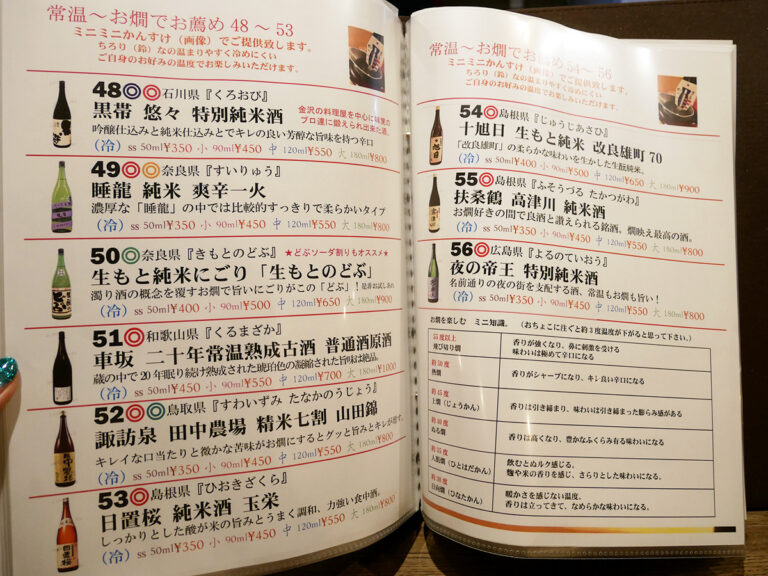 常温～お燗でお薦め 48 ～ 53
ミニミニかんすけ（画像）でご提供致します。
ちろり（錫）なの温まりやすく冷めにくい
ご自身のお好みの温度でお楽しみいただけます。
48◎◎石川県『くろおび』
黒帯 悠々 特別純米酒
金沢の料理屋を中心に味覚の
プロ達に鍛えられ出来た酒。
吟醸仕込みと純米仕込みとでキレの良い芳醇な旨味を持つ辛口
（冷）ss 50ml¥350 小 90ml¥450 中 120ml¥550 大 180ml¥800
49◎◎奈良県『すいりゅう』
睡龍 純米 爽辛一火
濃厚な「睡龍」の中では比較的すっきりで柔らかいタイプ
（冷）ss 50ml¥350 小 90ml¥450 中 120ml¥550 大 180ml¥800
50◎奈良県『きもとのどぶ』 ★どぶソーダ割りもオススメ★
生もと純米にごり「生もとのどぶ」
濁り酒の概念を覆すお燗で旨いにごりがこの「どぶ」！是非お試しあれ
（冷）ss 50ml¥400 小 90ml¥500 中 120ml¥650 大 180ml¥900
51◎和歌山県『くるまざか』
車坂 二十年常温熟成古酒 普通酒原酒
蔵の中で 20 年眠り続け熟成された琥珀色の凝縮された旨味は絶品。
（冷）ss 50ml¥450 小 90ml¥550 中 120ml¥700 大 180ml¥1000
52◎◎鳥取県『すわいずみ たなかのうじょう』
諏訪泉 田中農場 精米七割 山田錦
キレイな口当たりと微かな苦味がお燗にするとグッと旨みとキレが増す。
（冷）ss 50ml¥350 小 90ml¥450 中 120ml¥550 大 180ml¥800
53◎島根県『ひおきざくら』
日置桜 純米酒 玉栄
しっかりとした酸が米の旨みとうまく調和、力強い食中酒。
（冷）ss 50ml¥350 小 90ml¥450 中 120ml¥550 大 180ml¥800
常温～お燗でお薦め 54 ～ 56
ミニミニかんすけ（画像）でご提供致します。
ちろり（錫）なの温まりやすく冷めにくい
ご自身のお好みの温度でお楽しみいただけます。
54◎島根県『じゅうじあさひ』
十旭日 生もと純米 改良雄町 70
「改良雄町」の柔らかな味わいを生かした生酛純米。
（冷）ss 50ml¥400 小 90ml¥500 中 120ml¥650 大 180ml¥900
55◎島根県『ふそうづる たかつがわ』
扶桑鶴 高津川 純米酒
お燗好きの間で良酒と讃えられる銘酒。燗映え最高の酒。
（冷）ss 50ml¥350 小 90ml¥450 中 120ml¥550 大 180ml¥800
56◎広島県『よるのていおう』
夜の帝王 特別純米酒
名前通りの夜の街を支配する酒、常温もお燗も旨い！
（冷）ss 50ml¥350 小 90ml¥450 中 120ml¥550 大 180ml¥800
お燗を楽しむ ミニ知識。（おちょこに注ぐと約 3 度温度が下がると思って下さい。）
55 度以上
飛び切り燗
香りが強くなり、鼻に刺激を受ける
味わいは極めて辛口になる
約 50 度
熱燗
香りがシャープになり、キレ良い辛口になる
約 45 度
上燗（じょうかん）
香りは引き締まり、味わいは引き締まった膨らみ感がある
約 40 度
ぬる燗
香りは高くなり、豊かなふくらみ有る味わいになる
約 35 度
人肌燗（ひとはだかん）
飲むとぬルク感じる。
麹や米の香りを感じ、さらりとした味わいになる。
約 30 度
日向燗（ひなたかん）
暖かさを感じない温度。
香りは立ってきて、なめらかな味わいになる。